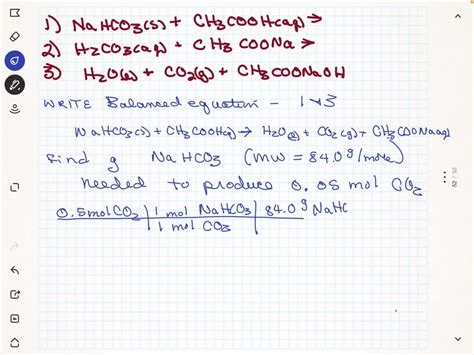 1) NaHCO3(s) + CH3COOH(aq) →
2) H2CO3(aq) + CH3COONa →
3) H2O(l) + CO2(g) + CH3COONaOH
WRITE Balanced equation - 1→3
NaHCO3(s) + CH3COOH(aq) → H2O(l) + CO2(g) + CH3COONa(aq)
find g NaHCO3 (mw = 84.0 g/mole)
needed to produce 0.05 mol CO2
0.5 mol CO2 | 1 mol NaHCO3 | 84.0 g NaHC
1 mol CO3